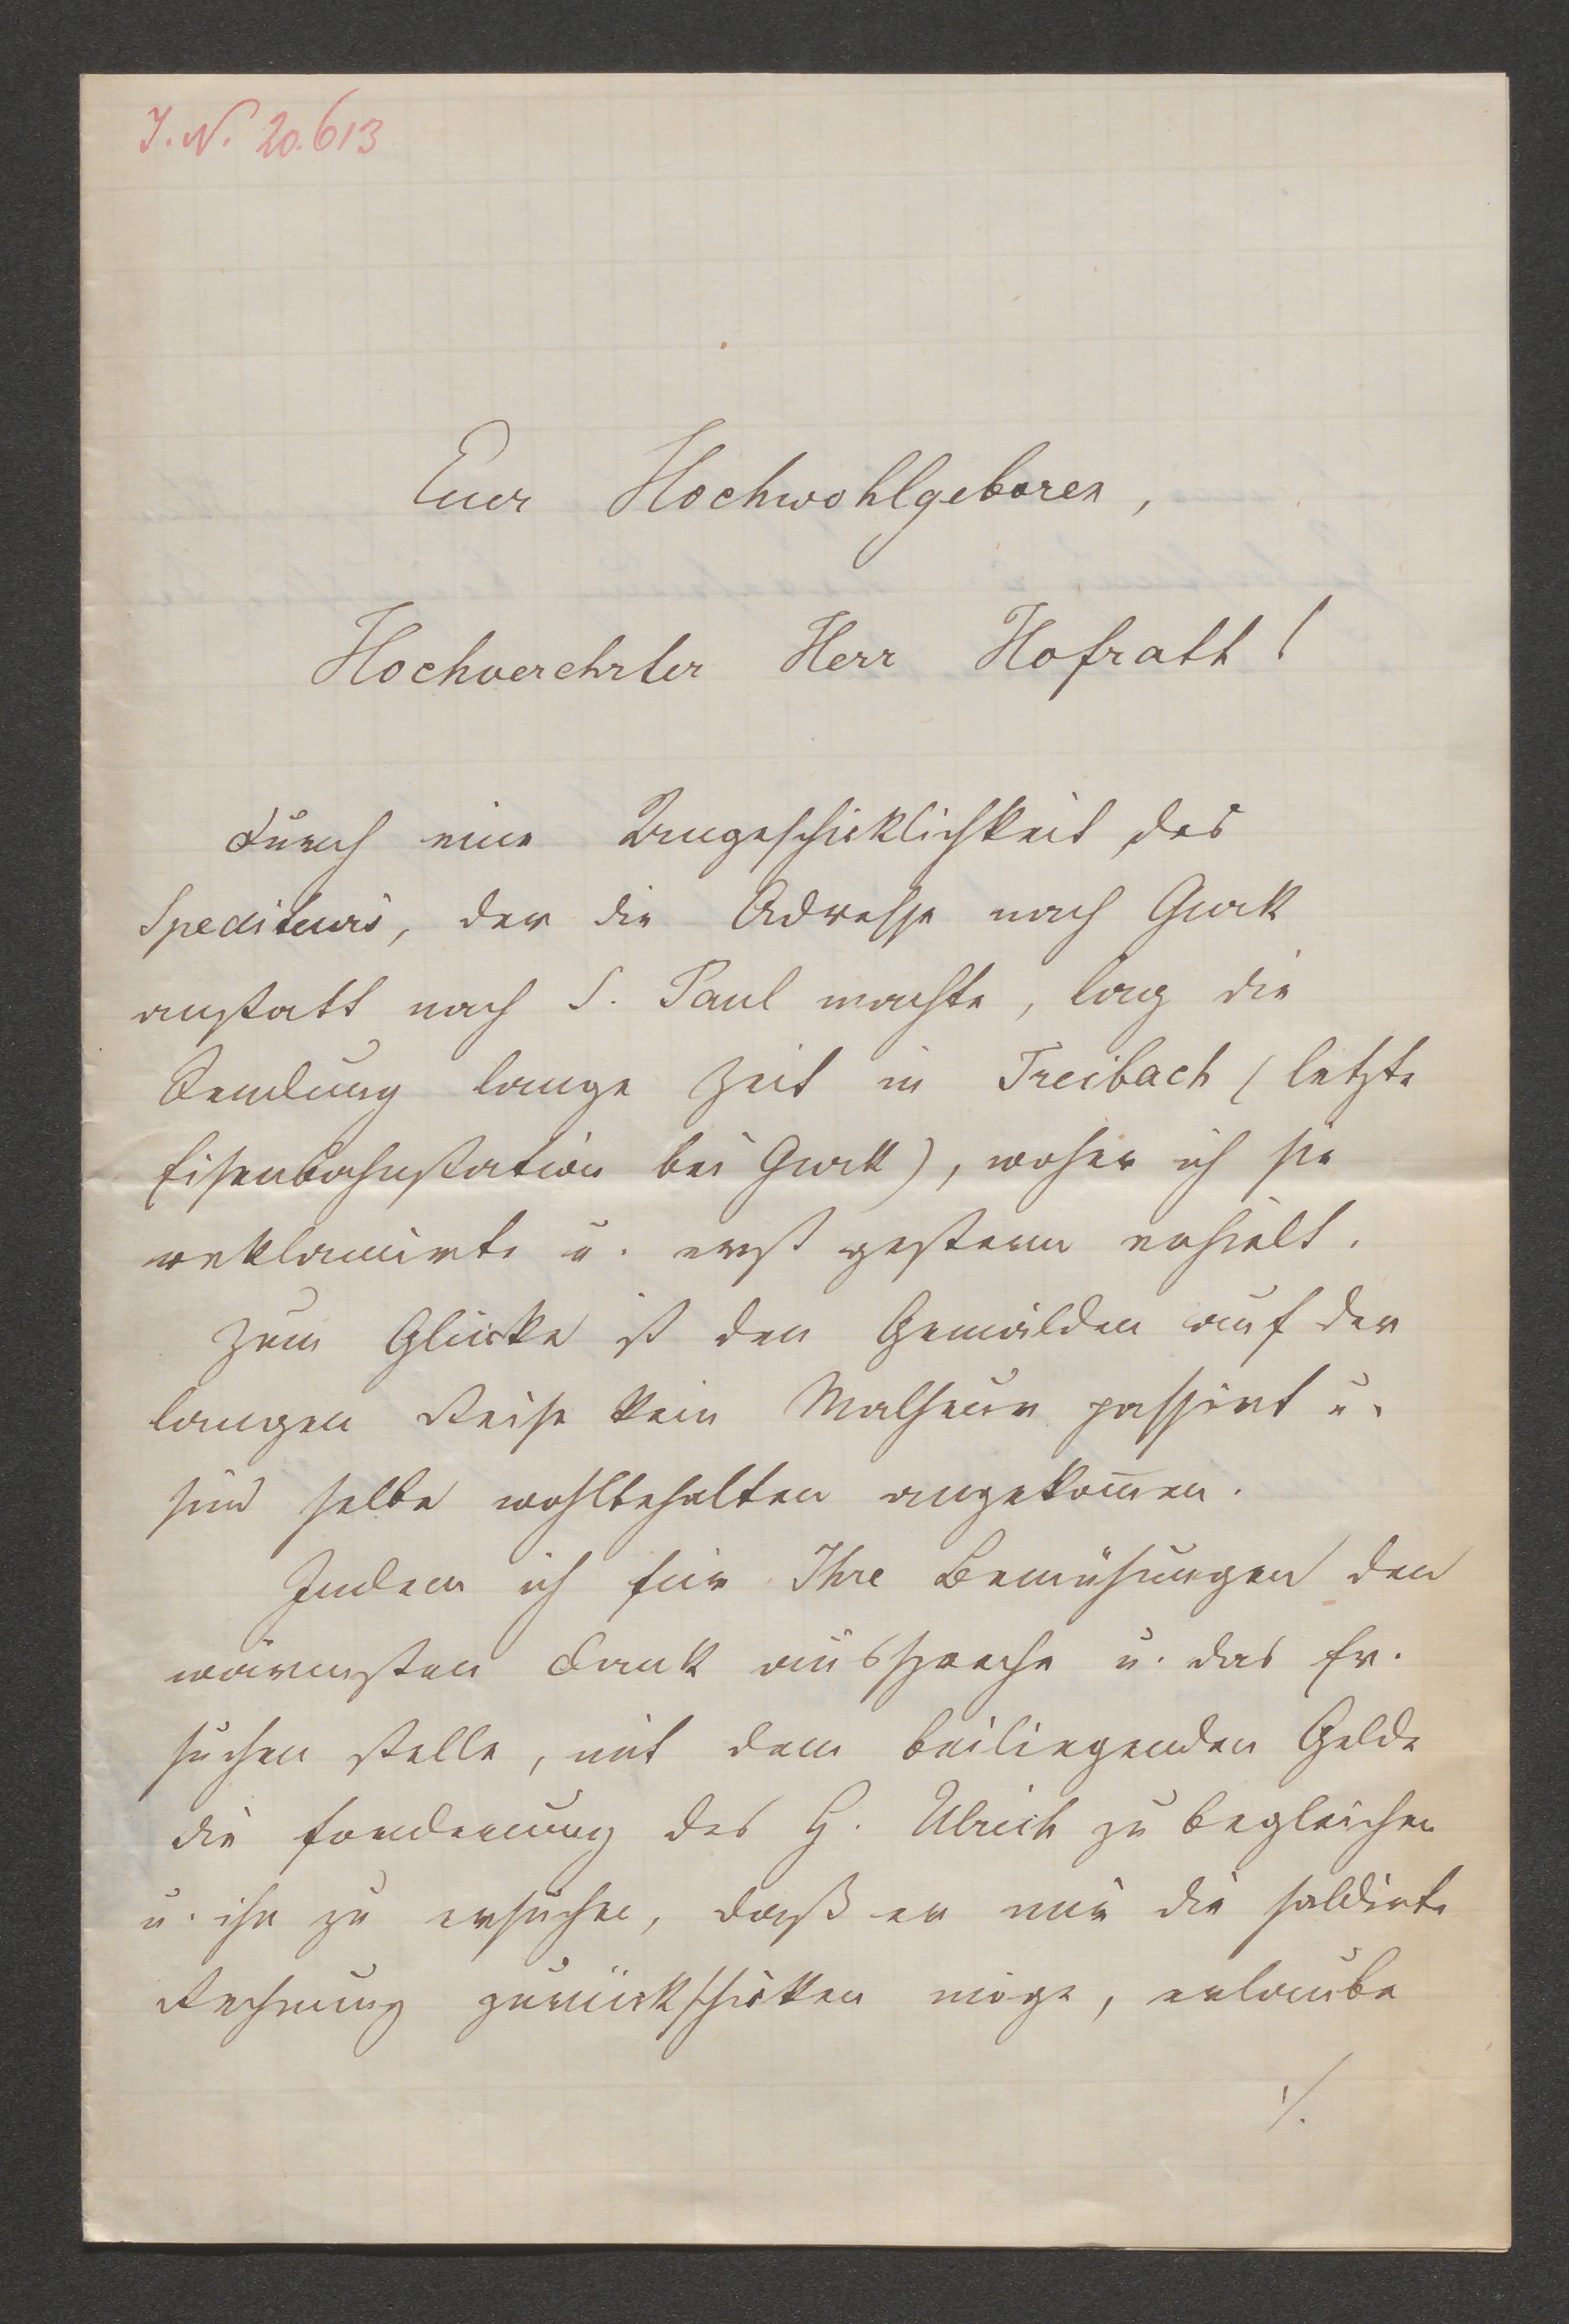 I. N. 20.613
Euer Hochwohlgeboren,
Hochverehrter Herr Hofrath!
Durch eine Ungeschicklichkeit des
Spediteurs, der die Adresse nach Gurk
anstatt nach S. Paul machte, lag die
Sendung lange Zeit in Treibach (letzte
Eisenbahnstation bei Gurk), woher ich sie
reklamirte u. erst gestern erhielt.
Zum Glücke ist den Gemälden auf der
langen Reise kein Malheur passirt u.
sind selbe wohlbehalten angekom̅en.
Indem ich für Ihre Bemühungen den
wärmsten Dank ausspreche u. das Er-
suchen stelle, mit dem beiliegenden Gelde
die Forderung des H. Ulrich zu begleichen
u. ihn zu ersuchen, daß er mir die saldirte
Rechnung zurückschicken möge, erlaube
./.